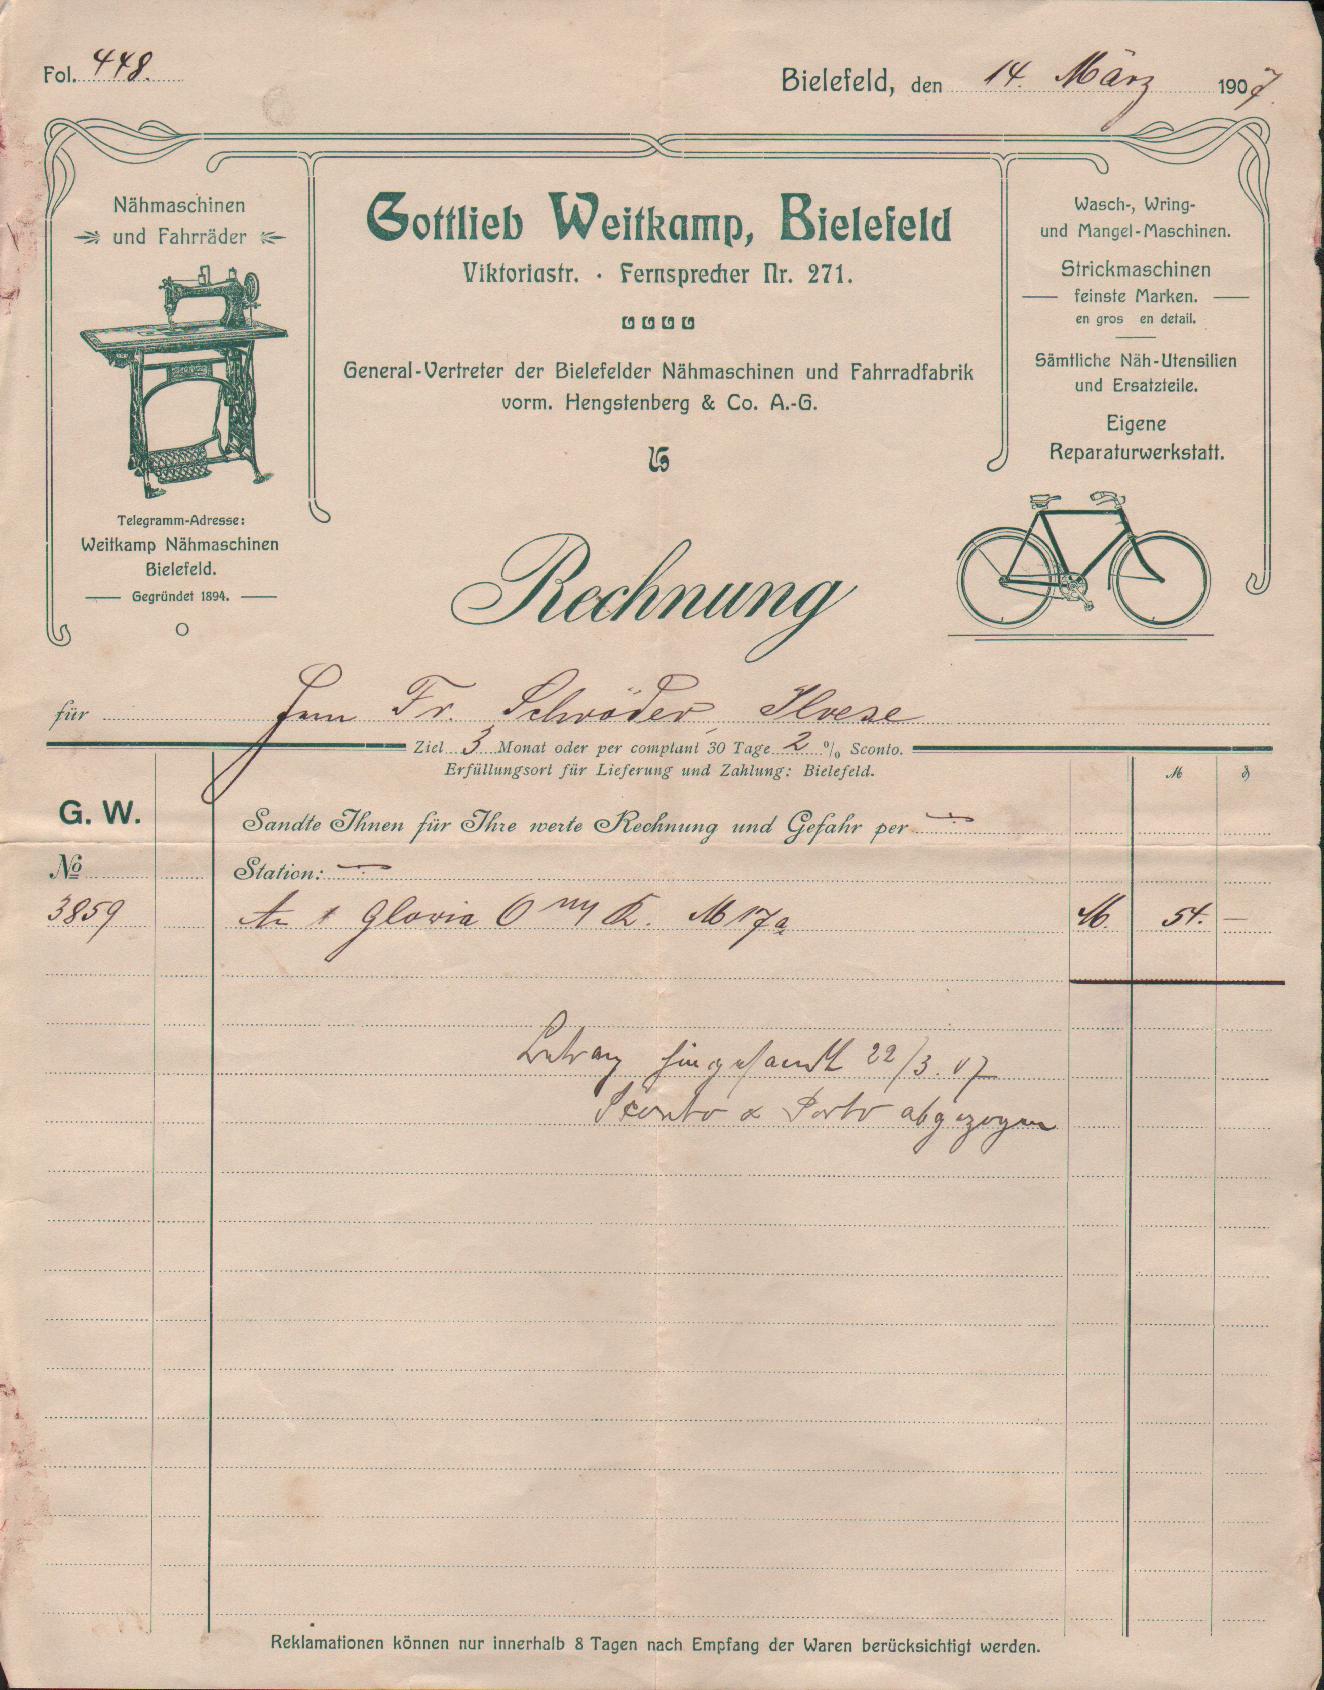 Fol. 448.
Bielefeld, den 14. März 1907.
Nähmaschinen
und Fahrräder
Telegramm-Adresse:
Weitkamp Nähmaschinen
Bielefeld.
Gegründet 1894.
Gottlieb Weitkamp, Bielefeld
Viktoriastr. · Fernsprecher Nr. 271.
General-Vertreter der Bielefelder Nähmaschinen und Fahrradfabrik
vorm. Hengstenberg & Co. A.-G.
Wasch-, Wring-
und Mangel-Maschinen.
Strickmaschinen
feinste Marken.
en gros en detail.
Sämtliche Näh-Utensilien
und Ersatzteile.
Eigene
Reparaturwerkstatt.
Rechnung
für Herrn Fr. Schröder, Ilvese
Ziel 3 Monat oder per comptant 30 Tage 2 % Sconto.
Erfüllungsort für Lieferung und Zahlung: Bielefeld.
M ₰
G. W.
Sandte Ihnen für Ihre werte Rechnung und Gefahr per
No Station:
3859 An 1 Gloria M 17a M. 54. —
Betrag hingesandt 22/3. 07
Sconto & Porto abgezogen
Reklamationen können nur innerhalb 8 Tagen nach Empfang der Waren berücksichtigt werden.